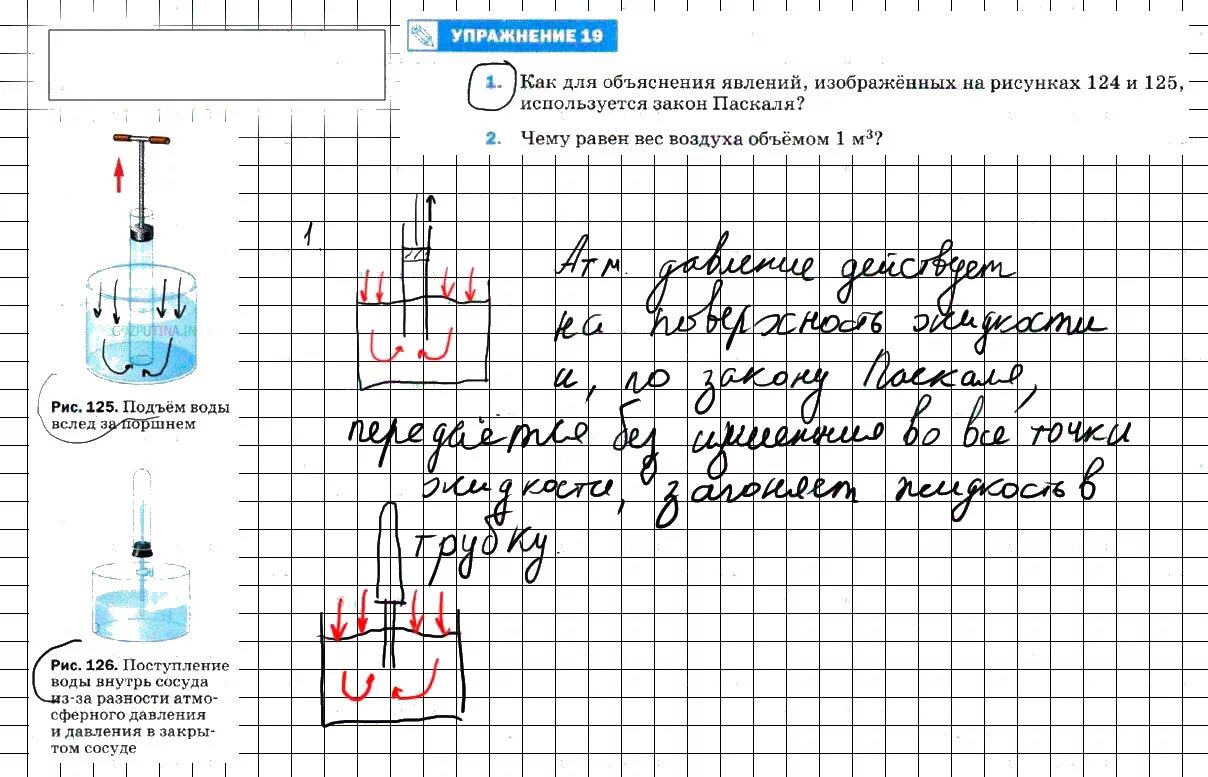 УПРАЖНЕНИЕ 19
1. Как для объяснения явлений, изображённых на рисунках 124 и 125,
используется закон Паскаля?
2. Чему равен вес воздуха объёмом 1 м³?
GDZPUTINA.IN
Рис. 125. Подъём воды
вслед за поршнем
Рис. 126. Поступление
воды внутрь сосуда
из-за разности атмо-
сферного давления
и давления в закры-
том сосуде
1.
Атм. давление действует
на поверхность жидкости
и, по закону Паскаля,
передаётся без изменения во все точки
жидкости, загоняет жидкость в
трубку.